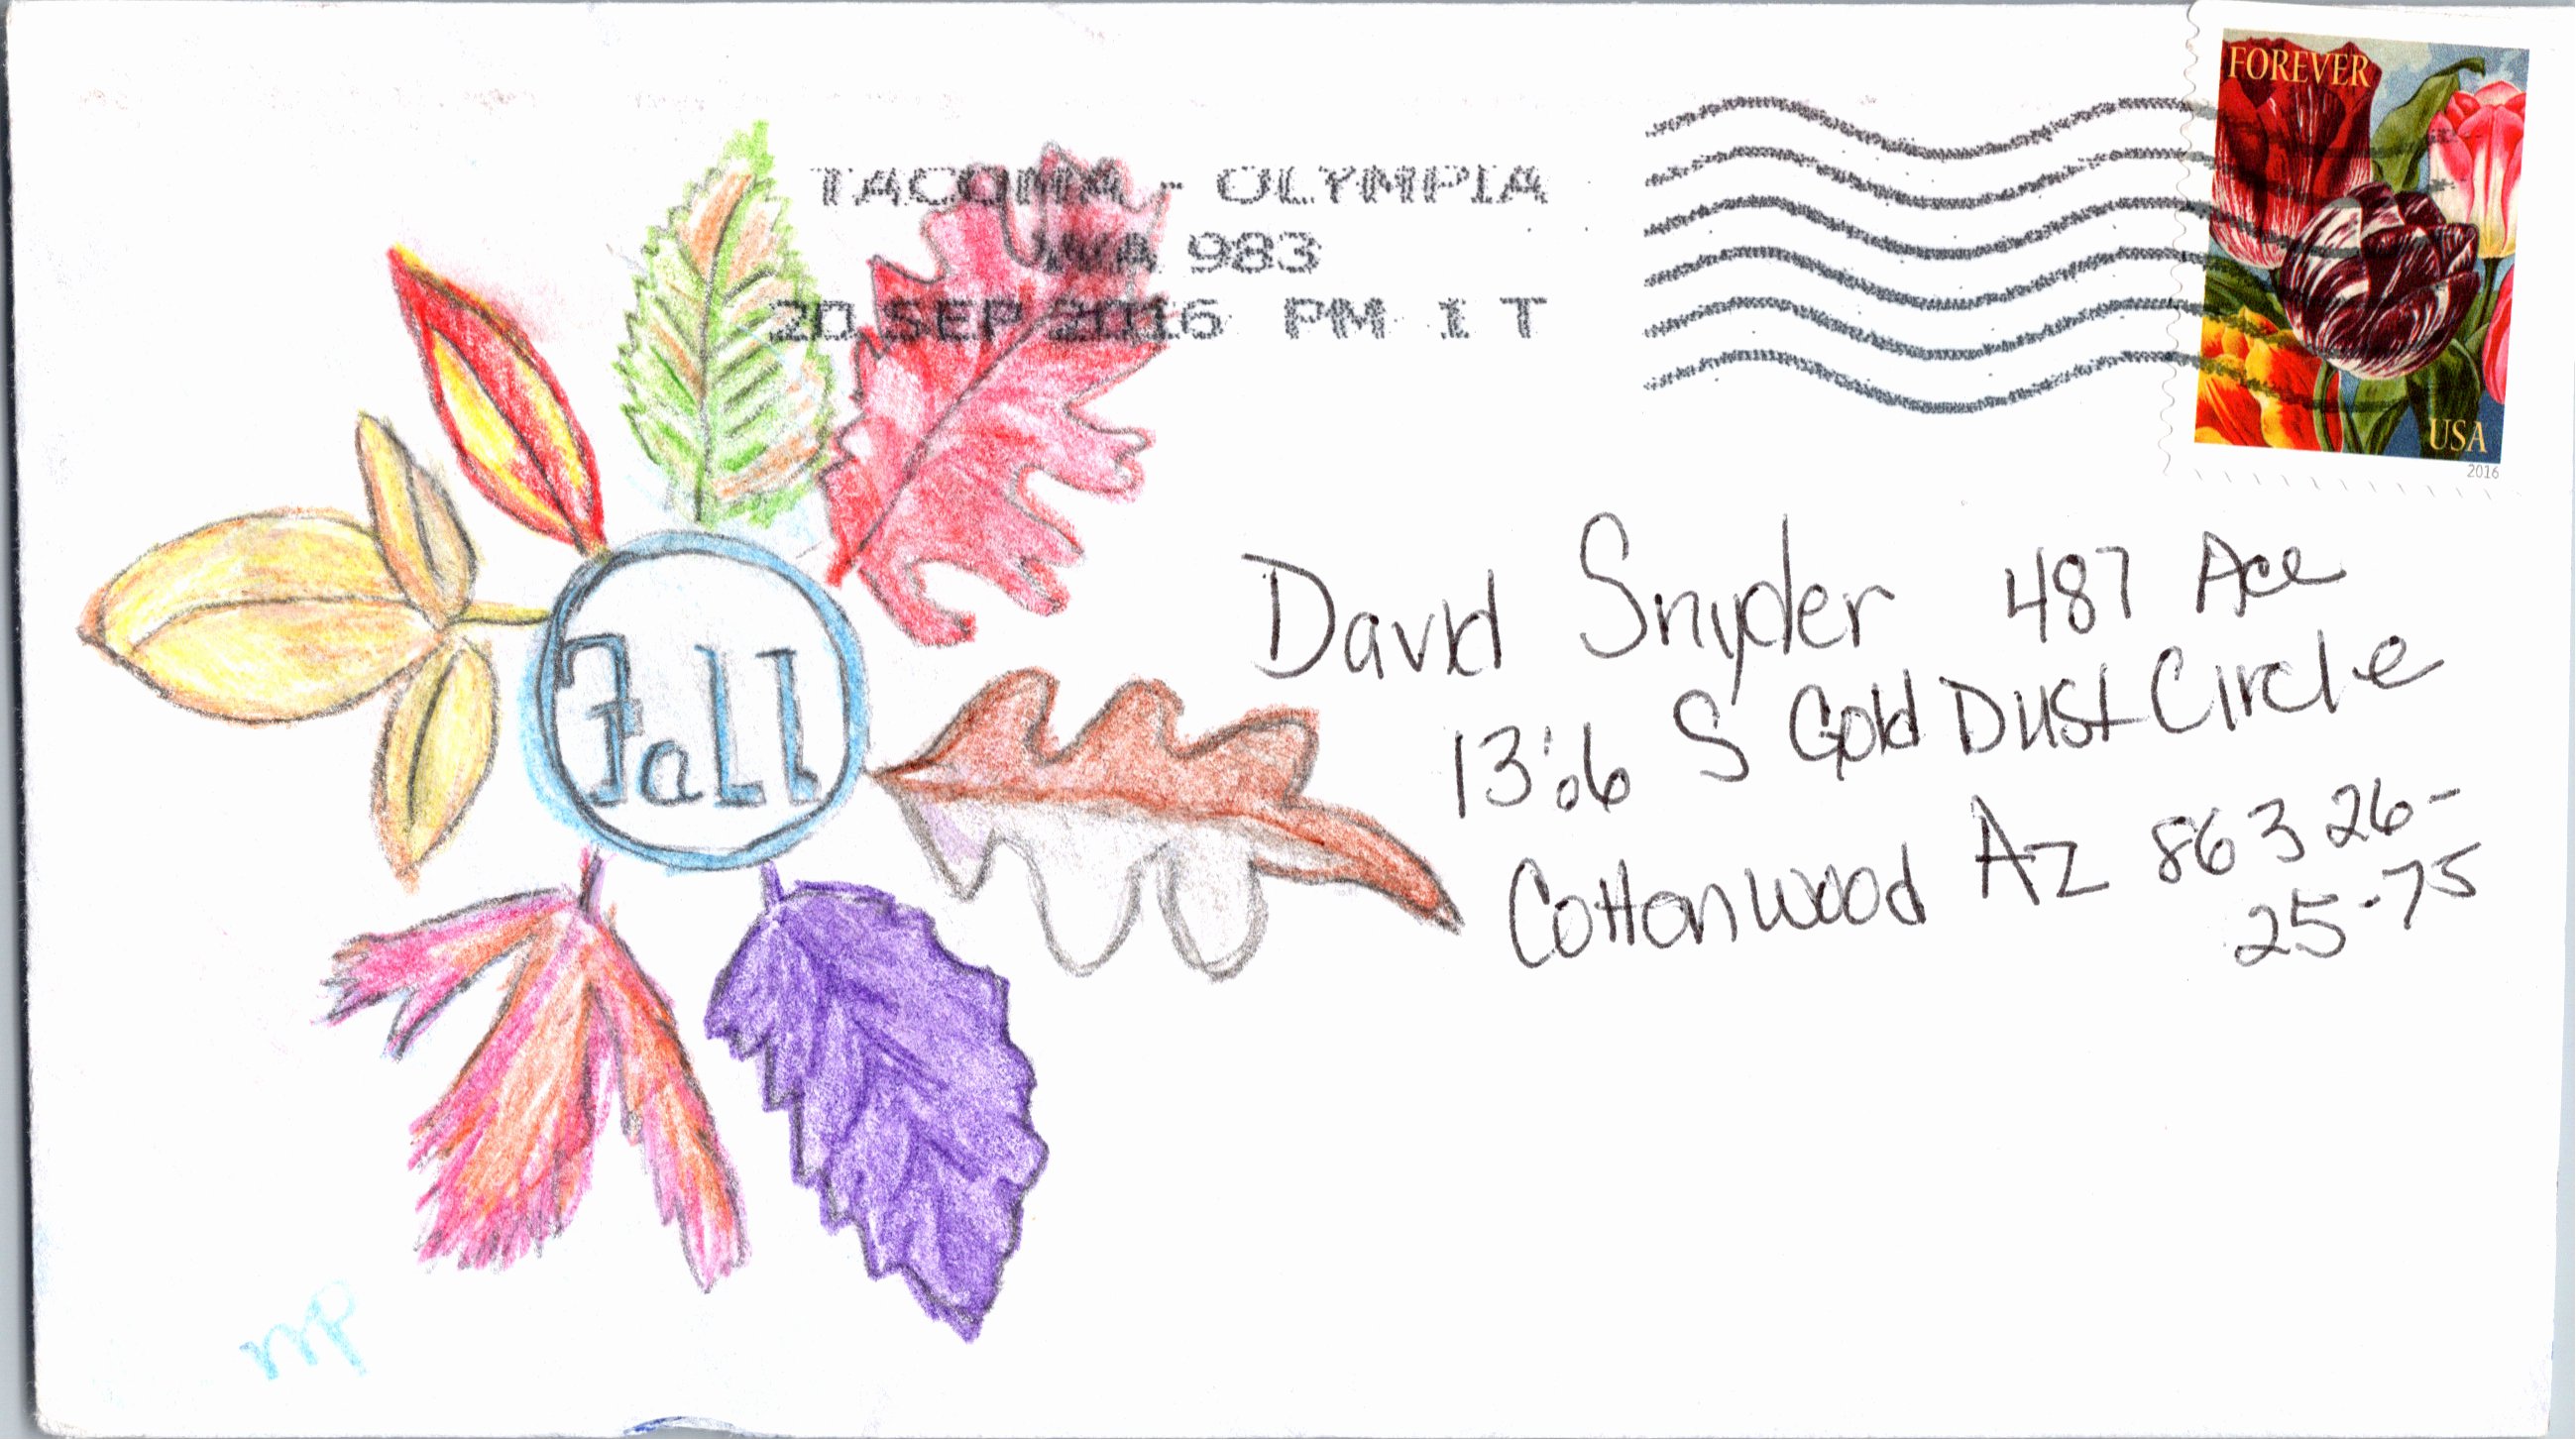 FOREVER
TACOMA - OLYMPIA
WA 983
20 SEP 2016 PM 1 T
USA
2016
David Snyder 487 Ace
13:06 S Gold Dust Circle
Cottonwood Az 86326-
25-75
Fall
MP